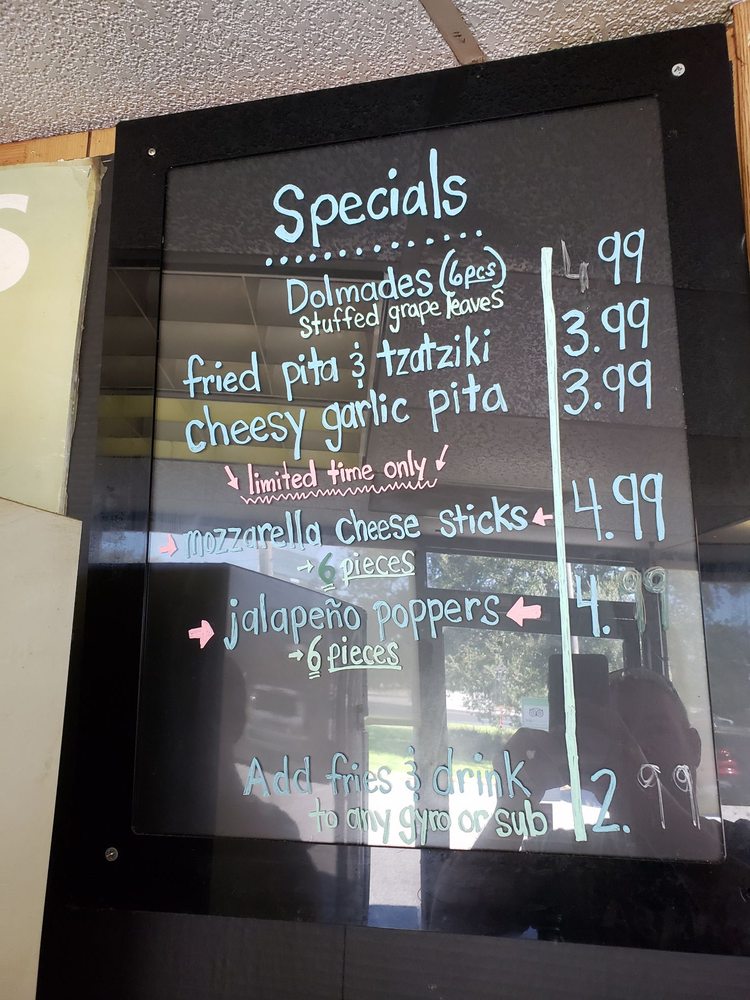 Specials
Dolmades (6pcs) 4 99
Stuffed grape leaves
fried pita & tzatziki 3.99
cheesy garlic pita 3.99
limited time only
mozzarella cheese sticks 4.99
→ 6 pieces
jalapeño poppers 4.99
→ 6 pieces
Add fries & drink 2.99
to any gyro or sub